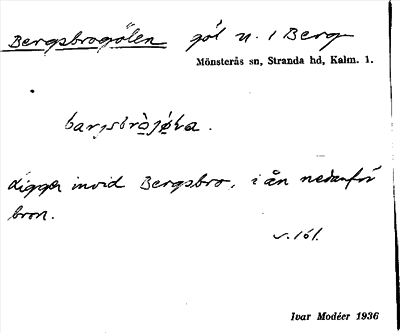 Bergsbrogölen göl n. / Berg
Mönsterås sn, Stranda hd, Kalm. l.
ligger invid Bergsbro, i ån nedanför
bron.
Ivar Modéer 1936